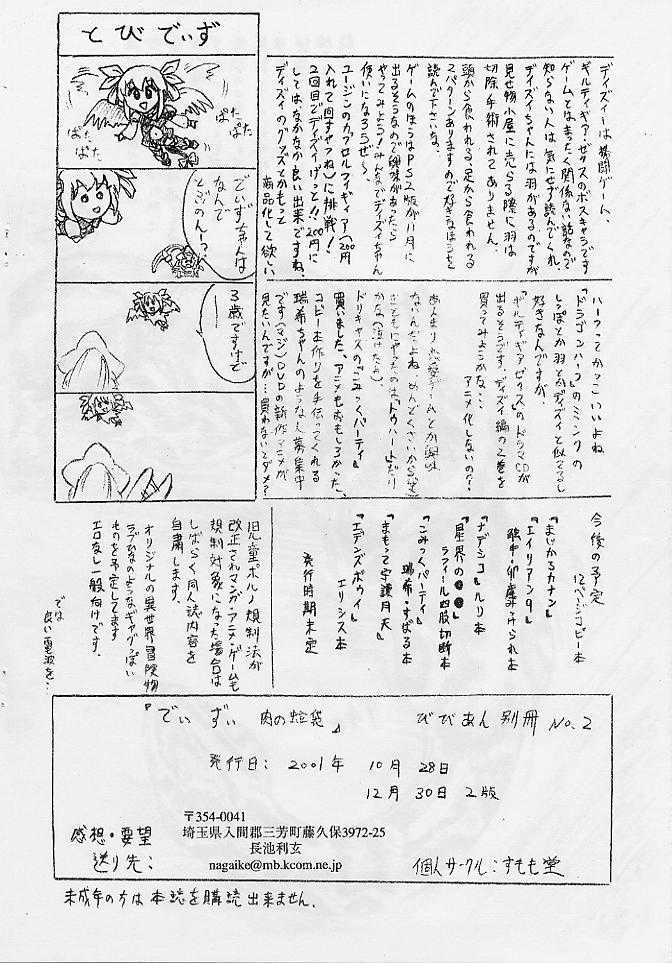 とびでぃず
ぱた
ぱたっ
ぱた
ぱた
でぃずちゃんは
なんで
とぶのんーっ?
3歳ですけど
ディズィーは格闘ゲーム、
ギルティギア・ゼクスのボスキャラです
ゲームとはまったく関係ない話なので
知らない人は気にせず読んでくれ、
ディズィちゃんには羽があるのですが
見せ物小屋に売らる際に羽は
切除手術されてありません。
頭から食われる、足から食われる
2パターンありますので好きなほうを
読んで下さいな。
ゲームのほうはPS2版が11月に
出るそうなので興味があったら
やってみよう!みんなでディズィちゃん
使いになろうぜ〜
ユージンのカプセルフィギュア(200円
入れて回すやつね)に挑戦!
2回目でディズィげっと!!200円に
してはなかなか良い出来ですね、
ディズィのグッズとかもって
商品化して欲しい、
ハーフってかっこいいよね
『ドラゴンハーフ』のミンクの
しっぽとか羽とかディズィと似てるし
好きなんですが、
『ギルティギアゼクス』のドラマCDが
出るそうです、ディズィ編の2巻を
買ってみようかな…
アニメ化しないの?
あんまり恋愛ゲームとか興味
ないんだよね、めんどくさいから
まともにやったのは『トゥハート』だけ
かな(泣けたよ)
ドリキャスの『こみっくパーティ』
買いました、アニメもおもしろかった、
コピー本作りを手伝ってくれる
瑞希ちゃんのような人募集中
です(マジ)DVDの新作アニメが
見たいんですが…買わないとダメ?
今後の予定
12ページコピー本
『まじかるカナン』
『エイリアン9』
触手・卵産みつけられ本
『ナデシコ』ルリ本
『星界の●●』
ラフィール四肢切断本
『こみっくパーティ』
瑞希・すばる本
『まもって守護月天』
『エデンズボゥイ』
エリシス本
発行時期未定
児童ポルノ規制法が
改正されマンガ・アニメ・ゲームも
規制対象になった場合は
しばらく同人誌内容を
自粛します。
オリジナルの異世界冒険物
ラブひなのようなギャグっぽい
ものを予定してます
エロなし一般向けです。
では
良い電波を…
『でぃずぃ 肉の紅袋』 びびあん別冊 NO.2
発行日: 2001年 10月 28日
12月 30日 2版
〒354-0041
埼玉県入間郡三芳町藤久保3972-25
長池利玄
nagaike@mb.kcom.ne.jp
感想・要望
送り先:
個人サークル:すもも堂
未成年の方は本誌を購読出来ません.